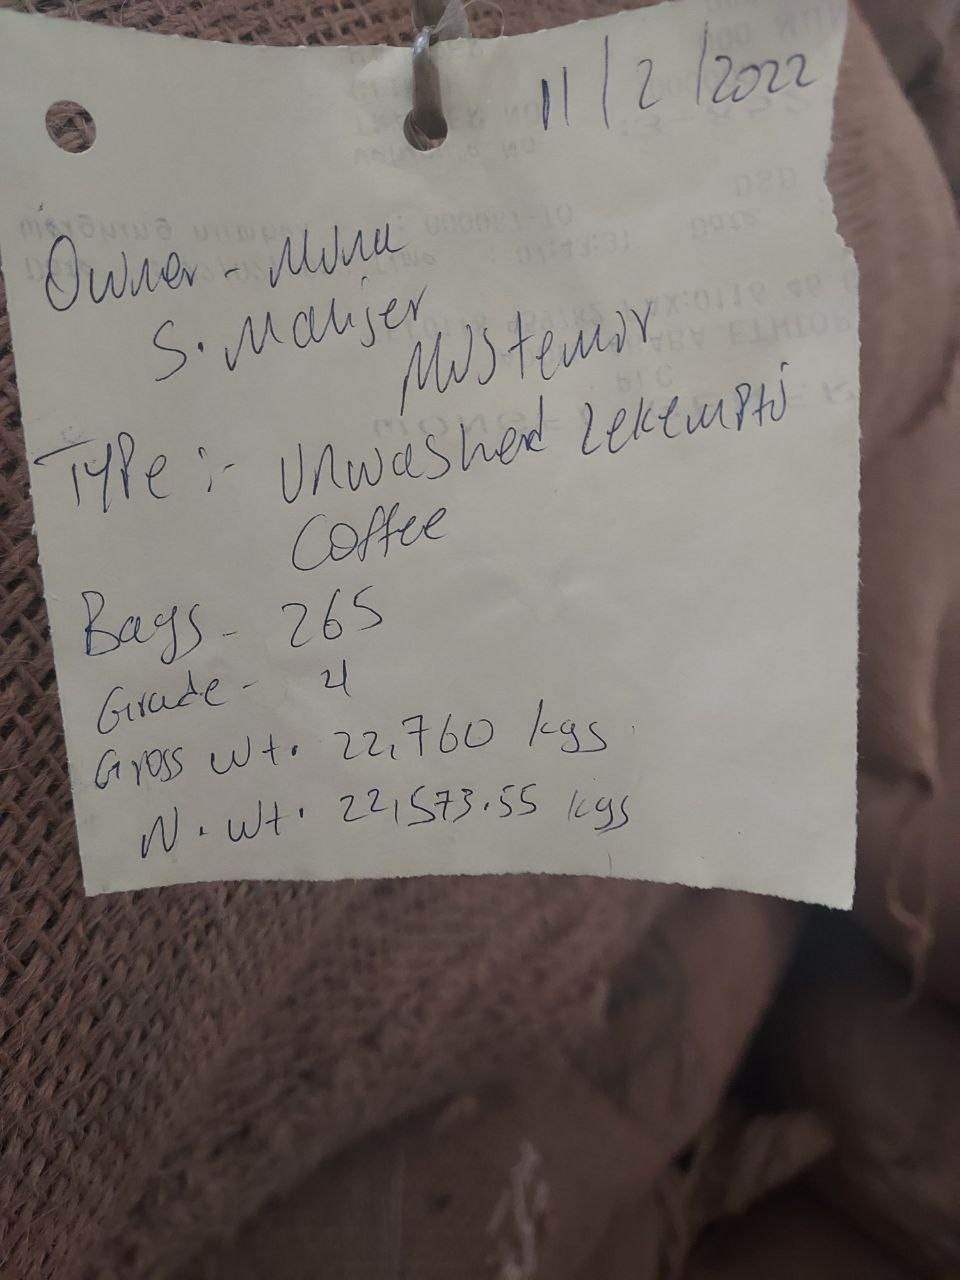 11/2/2022
Owner - Muna
S. Manijer
Mustemir
Type :- Unwashed Lekempti
Coffee
Bags - 265
Grade - 4
Gross wt. 22,760 kgs
N. wt. 22,573.55 kgs